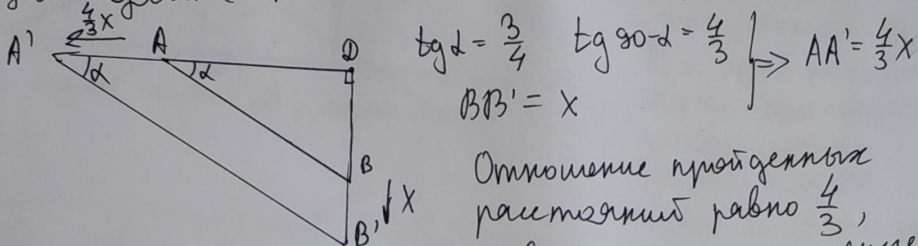 4/3 x
A' A D
α α
tg α = 3/4 tg 90-α = 4/3 } => AA' = 4/3 x
BB' = x
B
x
B'
Отношение пройденных
расстояний равно 4/3,